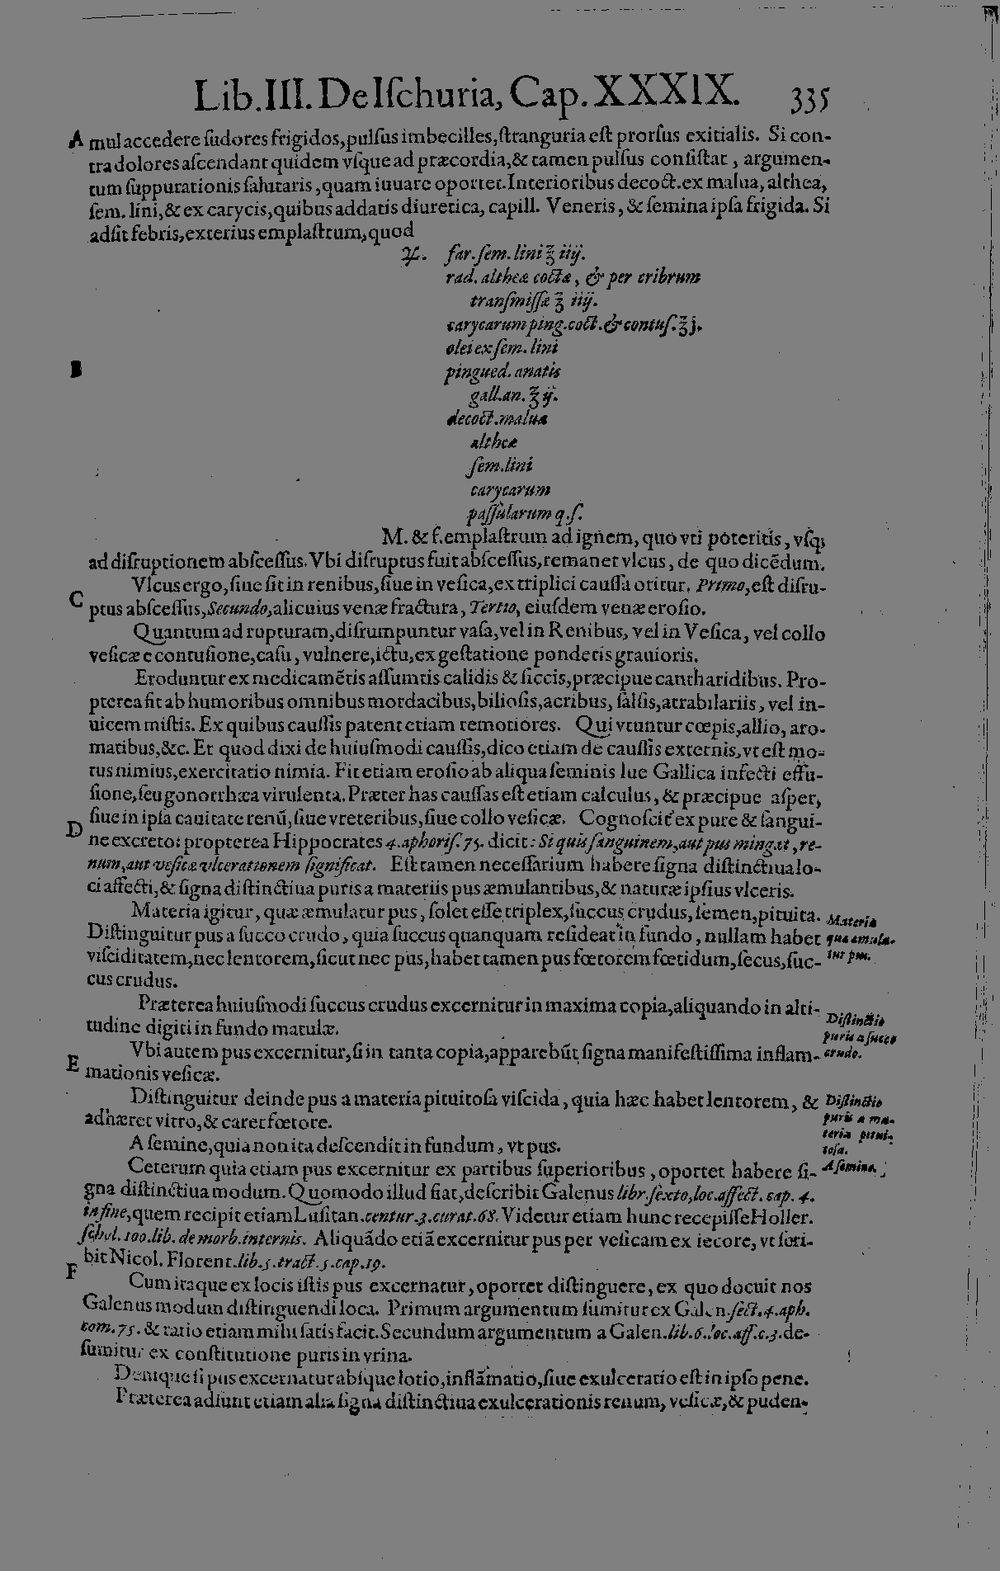 Lib. III. De Iſchuria, Cap. XXXIX. 335
A mul accedere ſudores frigidos, pulſus imbecilles, ſtranguria eſt prorſus exitialis. Si con-
tra dolores aſcendant quidem vſque ad præcordia, & tamen pulſus conſiſtat, argumen-
tum ſuppurationis ſalutaris, quam iuuare oportet. Interioribus decoct. ex malua, althea,
ſem. lini, & ex carycis, quibus addatis diuretica, capill. Veneris, & ſemina ipſa frigida. Si
adſit febris, exterius emplaſtrum, quod
♃. far. ſem. lini ℥ iiij.
rad. altheæ coctæ, & per cribrum
tranſmiſſæ ℥ iij.
carycarum ping. coct. & contuſ. ℥ j.
olei ex ſem. lini
B pingued. anatis
gall. an. ℥ ij.
decoct. maluæ
altheæ
ſem. lini
carycarum
paſſularum q. ſ.
M. & f. emplaſtrum ad ignem, quo vti poteritis, vſq;
ad diſruptionem abſceſſus. Vbi diſruptus fuit abſceſſus, remanet vlcus, de quo dicēdum.
Vlcus ergo, ſiue ſit in renibus, ſiue in veſica, ex triplici cauſſa oritur. Primo, eſt diſru-
C ptus abſceſſus, Secundo, alicuius venæ fractura, Tertio, eiuſdem venæ eroſio.
Quantum ad rupturam, diſrumpuntur vaſa, vel in Renibus, vel in Veſica, vel collo
veſicæ e contuſione, caſu, vulnere, ictu, ex geſtatione ponderis grauioris.
Eroduntur ex medicamētis aſſumtis calidis & ſiccis, præcipue cantharidibus. Pro-
pterea fit ab humoribus omnibus mordacibus, bilioſis, acribus, ſalſis, atrabilariis, vel in-
uicem miſtis. Ex quibus cauſſis patent etiam remotiores. Qui vtuntur cœpis, allio, aro-
matibus, &c. Et quod dixi de huiuſmodi cauſſis, dico etiam de cauſſis externis, vt eſt mo-
tus nimius, exercitatio nimia. Fit etiam eroſio ab aliqua ſeminis lue Gallica infecti effu-
ſione, ſeu gonorrhæa virulenta. Præter has cauſſas eſt etiam calculus, & præcipue aſper,
ſiue in ipſa cauitate renū, ſiue vreteribus, ſiue collo veſicæ. Cognoſcit᷑ ex pure & ſangui-
D ne excreto: propterea Hippocrates 4. aphoriſ. 75. dicit: Si quis ſanguinem, aut pus mingat, re-
num, aut veſicæ vlcerationem ſignificat. Eſt tamen neceſſarium habere ſigna diſtinctiua lo-
ci affecti, & ſigna diſtinctiua puris a materiis pus æmulantibus, & naturæ ipſius vlceris.
Materia igitur, quæ æmulatur pus, ſolet eſſe triplex, ſuccus crudus, ſemen, pituita.
Materia
Diſtinguitur pus a ſucco crudo, quia ſuccus quanquam reſideat in fundo, nullam habet
quæ æmula-
viſciditatem, nec lentorem, ſicut nec pus, habet tamen pus fœtorem fœtidum, ſecus, ſuc-
tur pus.
cus crudus.
Præterea huiuſmodi ſuccus crudus excernitur in maxima copia, aliquando in alti-
Diſtinctio
tudine digiti in fundo matulæ.
puris a ſucco
Vbi autem pus excernitur, ſi in tanta copia, apparebūt ſigna manifeſtiſſima inflam-
crudo.
E mationis veſicæ.
Diſtinguitur deinde pus a materia pituitoſa viſcida, quia hæc habet lentorem, &
Diſtinctio
adhæret vitro, & caret fœtore.
puris a ma-
teria pitui-
A ſemine, quia non ita deſcendit in fundum, vt pus.
toſa.
Ceterum quia etiam pus excernitur ex partibus ſuperioribus, oportet habere ſi-
A ſemine.
gna diſtinctiua modum. Quomodo illud fiat, deſcribit Galenus libr. ſexto, loc. affect. cap. 4.
in fine, quem recipit etiam Luſitan. centur. 3. curat. 68. Videtur etiam hunc recepiſſe Holler.
ſchol. 100. lib. de morb. internis. Aliquādo etiā excernitur pus per veſicam ex iecore, vt ſcri-
F bit Nicol. Florent. lib. 5. tract. 5. cap. 19.
Cum itaque ex locis iſtis pus excernatur, oportet diſtinguere, ex quo docuit nos
Galenus modum diſtinguendi loca. Primum argumentum ſumitur ex Galen. ſect. 4. aph.
com. 75. & ratio etiam mihi ſatis facit. Secundum argumentum a Galen. lib. 6. loc. aff. c. 3. de-
ſumitur ex conſtitutione puris in vrina.
Denique ſi pus excernatur abſque lotio, inflāmatio, ſiue exulceratio eſt in ipſo pene.
Præterea adſunt etiam alia ſigna diſtinctiua exulcerationis renum, veſicæ, & puden-